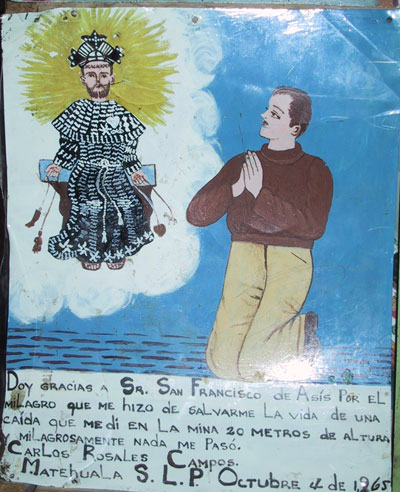 Doy gracias a Sr. San Francisco de Asís por el
milagro que me hizo de salvarme la vida de una
caída que me di en la mina 20 metros de altura
milagrosamente nada me pasó.
Carlos Rosales Campos.
Matehuala S.L.P. Octubre 4 de 1965